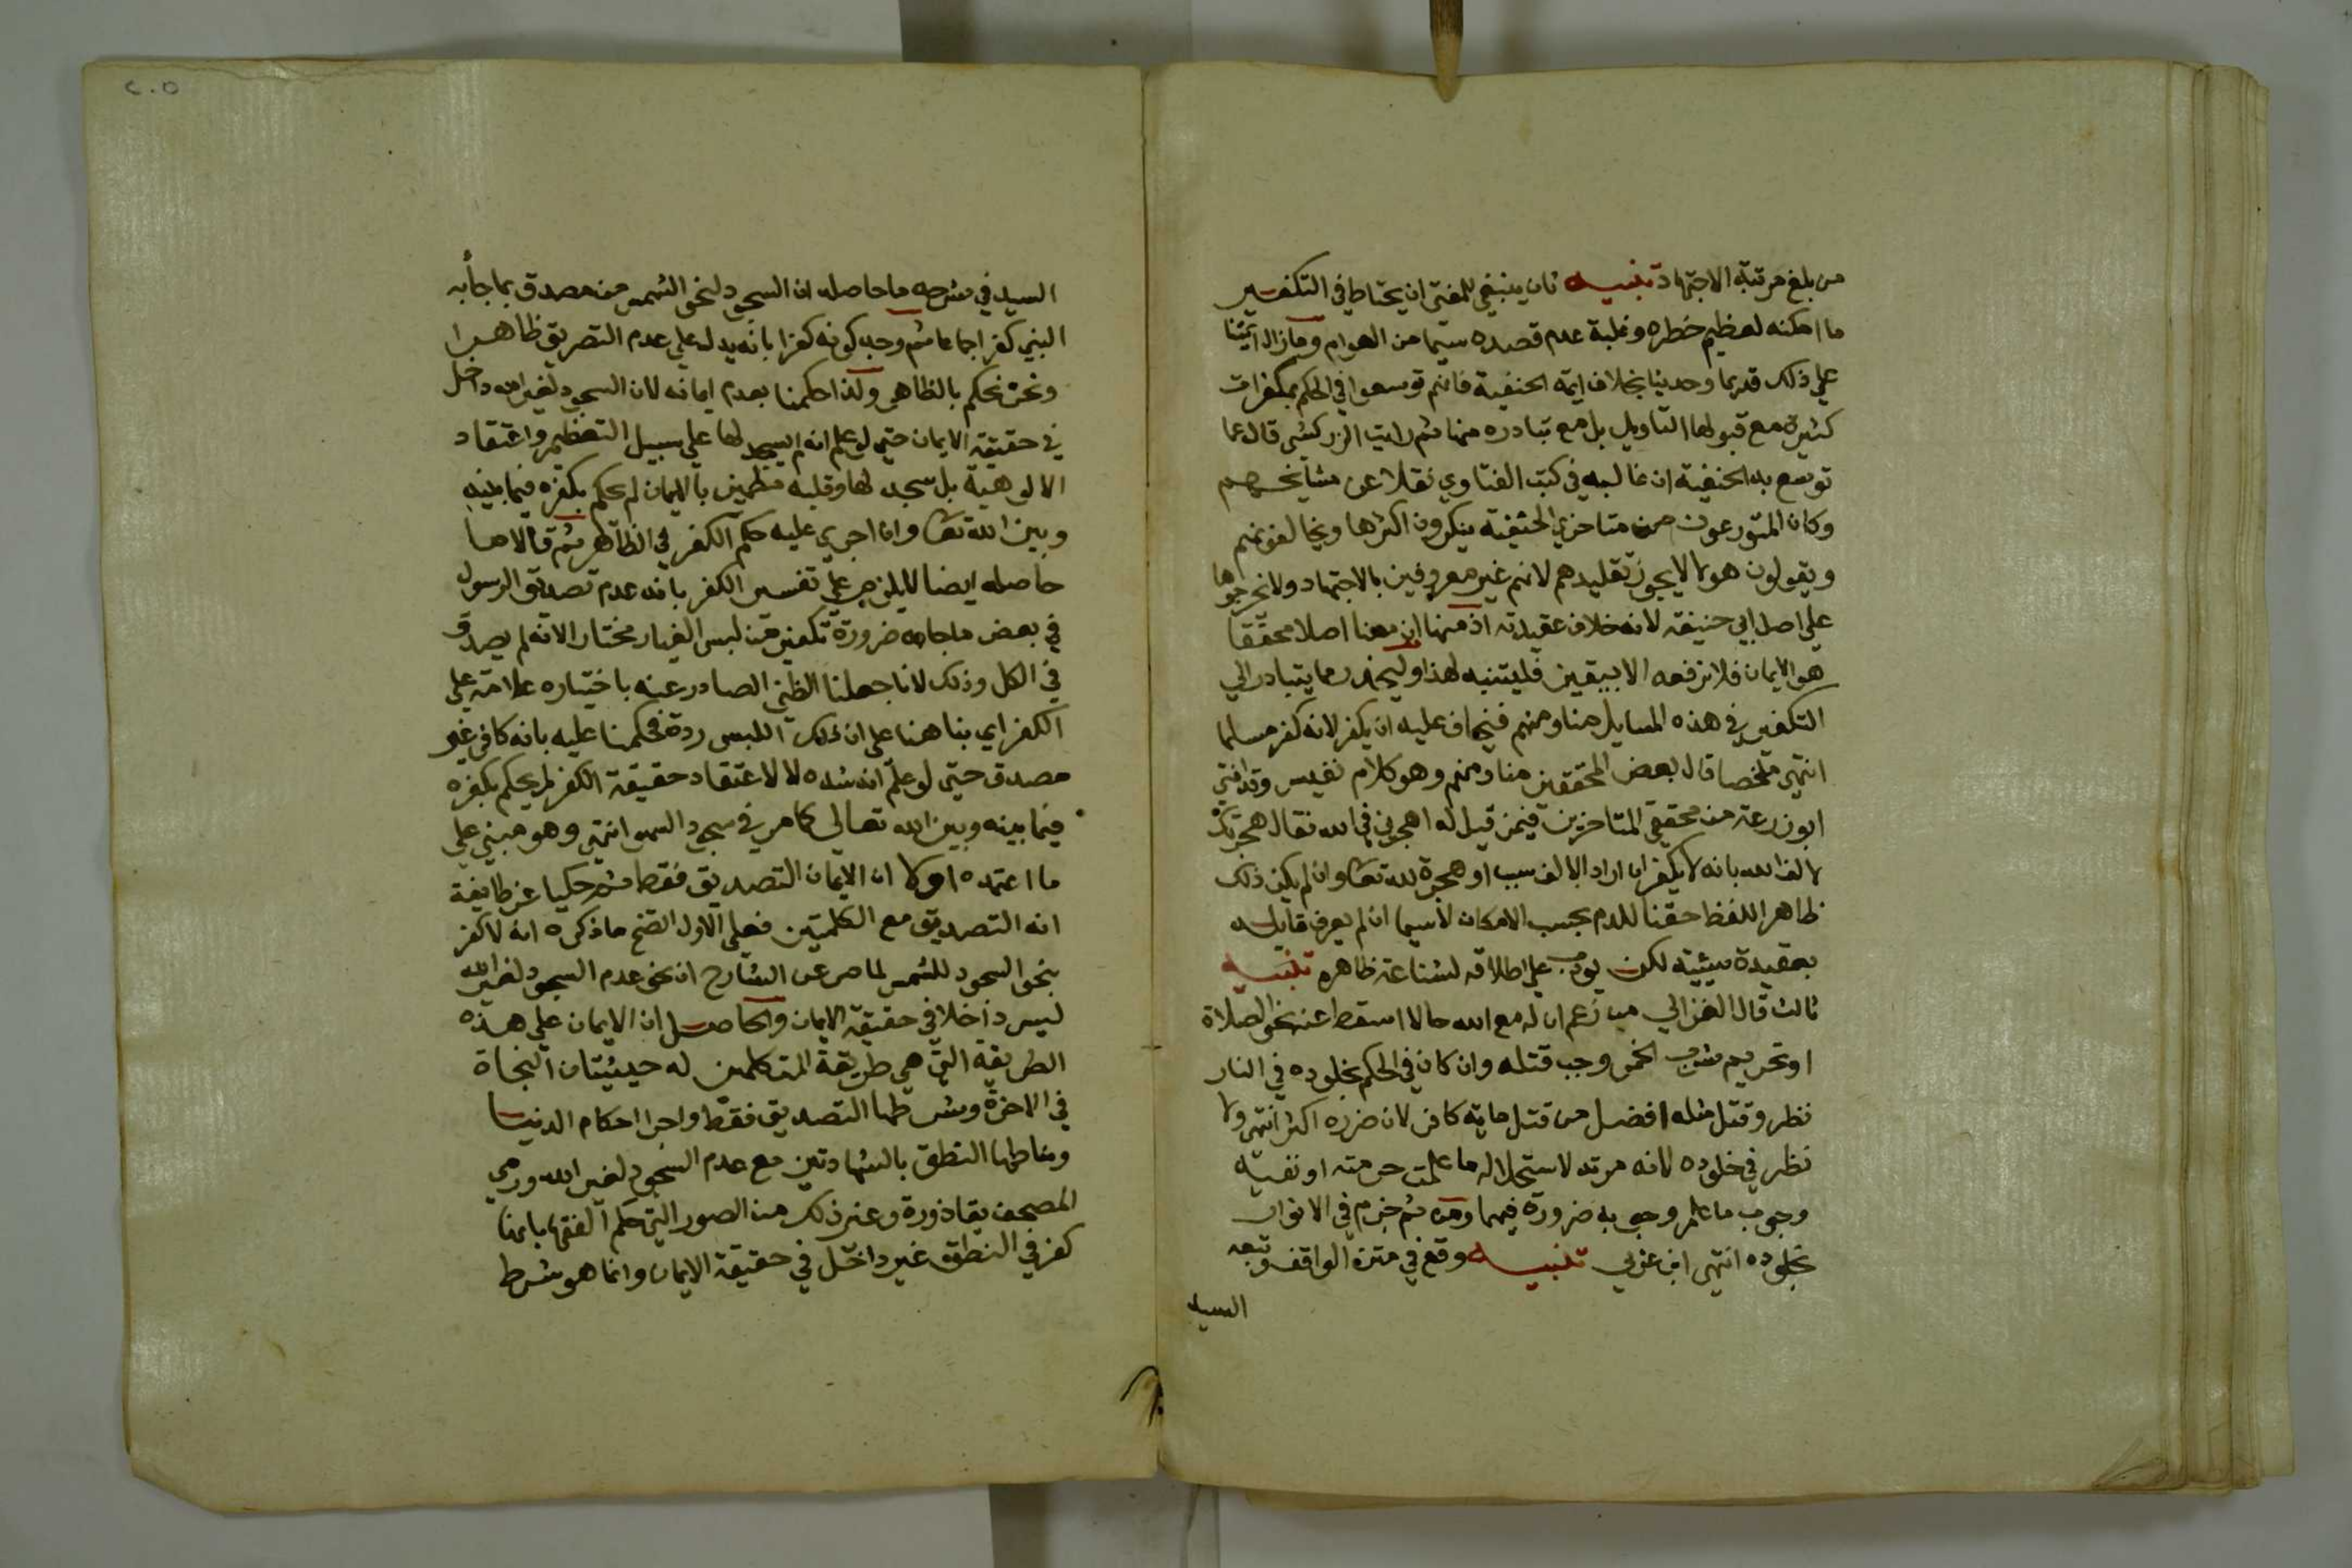 من بلغ مرتبة الاجتهاد تنبيه ثان ينبغي للمفتي ان يحتاط في التكفير
ما امكنه لعظيم خطره وغلبة عدم قصده سيما من العوام وما زال ائمتنا
علي ذلك قديما وحديثا بخلاف ايمة الحنفية فانهم توسعوا في الحكم بمكفرات
كثيرة مع قبولها التاويل بل مع تبادره منها ثم رايت الزركشي قال عما
توسع به الحنفية ان غالبه في كتب الفتاوي نقلا عن مشايخهم
وكان المتورعون من متاخري الحنفية ينكرون اكثرها ويخالفونهم
ويقولون هولا لا يجوز تقليدهم لانهم غير معروفين بالاجتهاد ولا نخرجوها
علي اصل ابي حنيفة لانه خلاف عقيدته اذ منها ان معنا اصلا محققا
هو الايمان فلا نرفعه الا بيقين فليتنبه لهذا وليحذر ما يتبادر الي
التكفير في هذه المسايل منا ومنهم فنخاف عليه ان يكفر لانه كفر مسلما
انتهي ملخصا قال بعض المحققين منا ومنهم وهو كلام نفيس وقد افتي
ابو زرعة من محققي المتاخرين فيمن قيل له اهجرني في الله فقال هجرتك
لالف لله بانه لا يكفر ان اراد لالف سبب او هجرة لله تعا وان لم يكن ذلك
ظاهر اللفظ حقنا للدم بحسب الامكان لا سيما ان لم يعرف قايله
بعقيدة سيئية لكن يودب علي اطلاقه لشناعة ظاهره تنبيه
ثالث قال الغزالي من زعم ان له مع الله حالا اسقط عنه نحو الصلاة
او تحريم شرب الخمر وجب قتله وان كان في الحكم بخلوده في النار
نظر وقتل مثله افضل من قتل ماية كافر لان ضرره اكثر انتهي ولا
نظر في خلوده لانه مرتد لاستحلاله ما علمت حرمته او نفيه
وجوب ما علم وجوبه ضرورة فيهما ومن ثم جزم في الانوار
بخلوده انتهي تنبيه وقع في متن المواقف وتبعه
السيد
السيد في شرحه ما حاصله ان السجود لنحو الشمس من مصدق بما جأ به
النبي كفر اجماعا ثم وجه كونه كفرا بانه يدل علي عدم التصديق ظاهرا
ونحن نحكم بالظاهر ولذا حكمنا بعدم ايمانه لان السجود لغير الله داخل
في حقيقة الايمان حتي لو علم انه لم يسجد لها علي سبيل التعظيم واعتقاد
الالوهية بل سجد لها وقلبه مطمين بالايمان لم يحكم بكفره فيما بينه
وبين الله تعا وان اجري عليه حكم الكفر في الظاهر ثم قالا ما
حاصله ايضا لا يلزم علي تفسير الكفر بانه عدم تصديق الرسول
في بعض ما جا به ضرورة تكفير من لبس الغيار مختارا لانه لم يصدق
في الكل وذلك لانا جعلنا الظن الصادر عنه باختياره علامة علي
الكفر اي بنا هنا علي ان ذلك اللبس ردة فحكمنا عليه بانه كافر غير
مصدق حتي لو علم انه شده لا لاعتقاد حقيقة الكفر لم يحكم بكفره
فيما بينه وبين الله تعالي كما مر في سجود الشمس انتهي وهو مبني علي
ما اعتمده اولا ان الايمان التصديق فقط ثم حكيا عن طايفة
انه التصديق مع الكلمتين فعلي الاول اتضح ما ذكره انه لا كفر
بنحو السجود للشمس لما مر عن الشارح ان نحو عدم السجود لغير الله
ليس داخلا في حقيقة الايمان والحاصل ان الايمان علي هذه
الطريقة التي هي طريقة المتكلمين له حيثيتان النجاة
في الاخرة وشرطها التصديق فقط واجرا احكام الدنيا
ومناطها النطق بالشهادتين مع عدم السجود لغير الله ورمي
المصحف بقاذورة وغير ذلك من الصور التي حكم الفقها بانها
كفر في النطق غير داخل في حقيقة الايمان وانما هو شرط